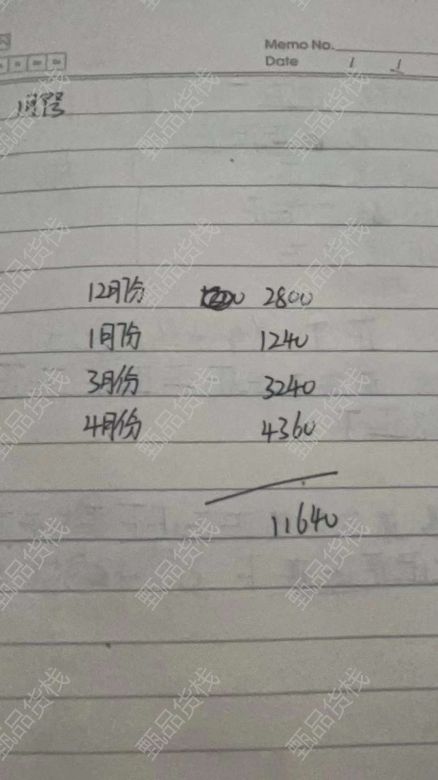 Memo No.
Date 1 1
12月份 2800
1月份 1240
3月份 3240
4月份 4360
11640
甄品货栈